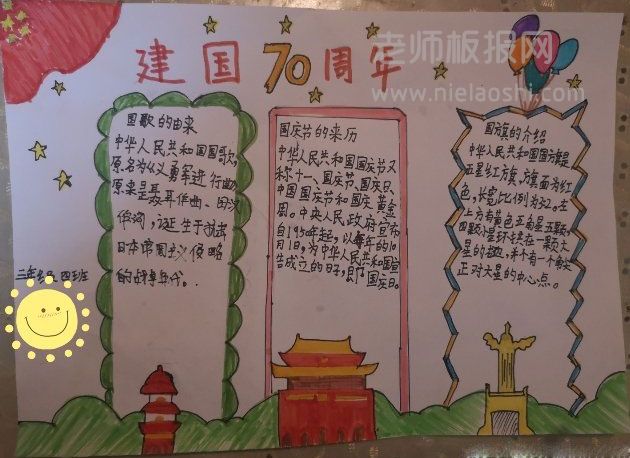 老师板报网
www.nielaoshi.com
建国70周年
国歌的由来
中华人民共和国国歌,
原名为《义勇军进行曲
原来是聂耳作曲、田汉
作词,诞生于抗击
日本帝国主义侵略
的战争年代。
三年级四班
国庆节的来历
中华人民共和国国庆节又
称十一、国庆节、国庆日、
中国国庆节和国庆黄金
周。中央人民政府宣布
自1950年起,以每年的10
月1日,为中华人民共和国宣
告成立的日子,即国庆日。
国旗的介绍
中华人民共和国国旗是
五星红旗,旗面为红
色,长宽比例为3:2。左
上方有黄色五角星五颗,
四颗小星环绕在一颗大
星的
正对大星的中心点。